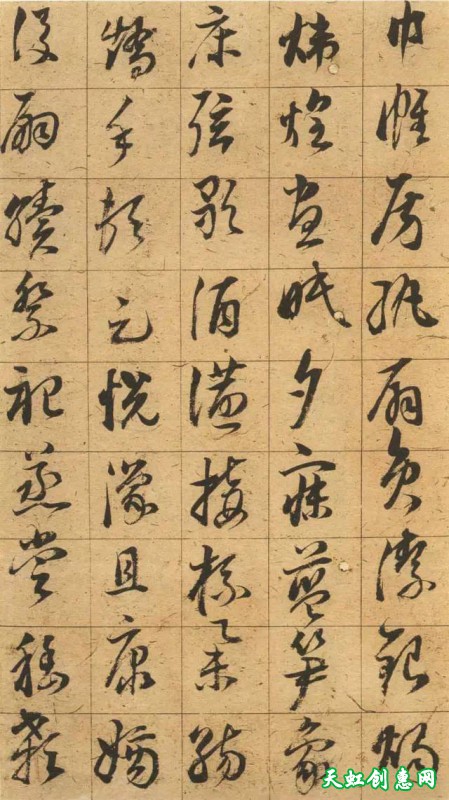 巾帷房紈扇員潔銀燭
煒煌晝眠夕寐藍筍象
床弦歌酒讌接杯舉觴
矯手頓足悅豫且康嫡
後嗣續祭祀蒸嘗稽顙
天虹创惠网